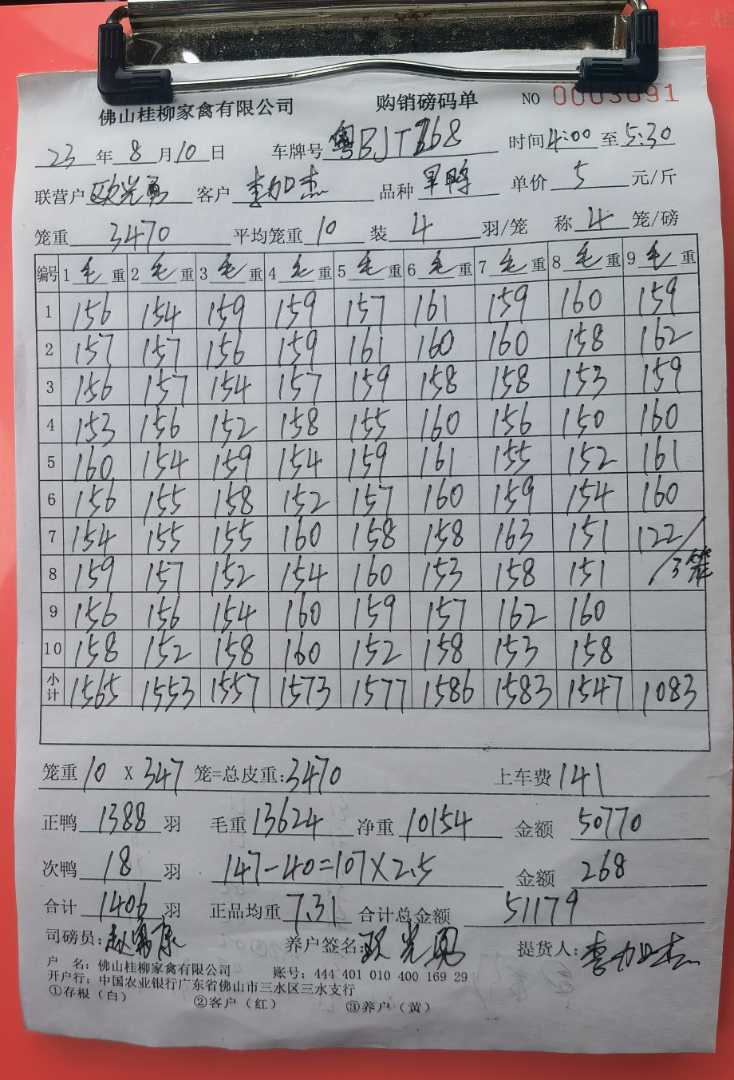 佛山桂柳家禽有限公司 购销磅码单 NO 0003091
23 年 8 月 10 日 车牌号 粤BJT768 时间 4:00 至 5:30
联营户 欧光勇 客户 李加杰 品种 单鸭 单价 5 元/斤
笼重 3470 平均笼重 10 装 4 羽/笼 称 4 笼/磅
编号 1 毛 重 2 毛 重 3 毛 重 4 毛 重 5 毛 重 6 毛 重 7 毛 重 8 毛 重 9 毛 重
1 156 154 159 159 157 161 159 160 159
2 157 157 156 159 161 160 160 158 162
3 156 157 154 157 159 158 158 153 159
4 153 156 152 158 155 160 156 150 160
5 160 154 159 154 159 161 155 152 161
6 156 155 158 152 157 160 159 154 160
7 154 155 155 160 158 158 163 151 122/
8 159 157 152 154 160 153 158 151 /3笼
9 156 156 154 160 159 157 162 160
10 158 152 158 160 152 158 153 158
小计 1565 1553 1557 1573 1577 1586 1583 1547 1083
笼重 10 X 347 笼=总皮重:3470 上车费 141
正鸭 1388 羽 毛重 13624 净重 10154 金额 50770
次鸭 18 羽 147-40=107×2.5 金额 268
合计 1406 羽 正品均重 7.31 合计总金额 51179
司磅员: 养户签名: 欧光勇 提货人: 李加杰
户 名: 佛山桂柳家禽有限公司 账号: 444 401 010 400 169 29
开户行: 中国农业银行广东省佛山市三水区三水支行
①存根（白） ②客户（红） ③养户（黄）